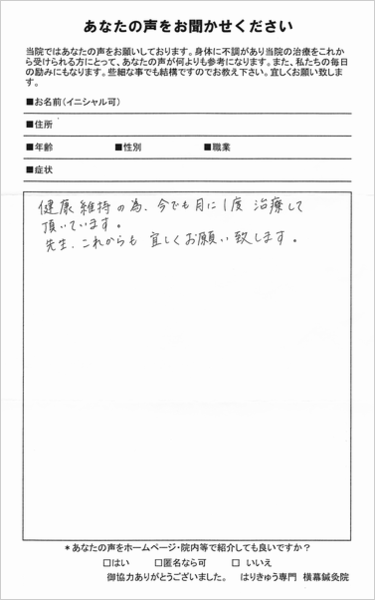 あなたの声をお聞かせください
当院ではあなたの声をお願いしております。身体に不調があり当院の治療をこれか
ら受けられる方にとって、あなたの声が何よりも参考になります。また、私たちの毎日
の励みにもなります。些細な事でも結構ですのでお教え下さい。宜しくお願い致しま
す。
■お名前(イニシャル可)
■住所
■年齢 ■性別 ■職業
■症状
健康維持の為、今でも月に1度 治療して
頂いています。
先生、これからも 宜しくお願い致します。
*あなたの声をホームページ・院内等で紹介しても良いですか?
□はい □匿名なら可 □ いいえ
御協力ありがとうございました。 はりきゅう専門 横幕鍼灸院